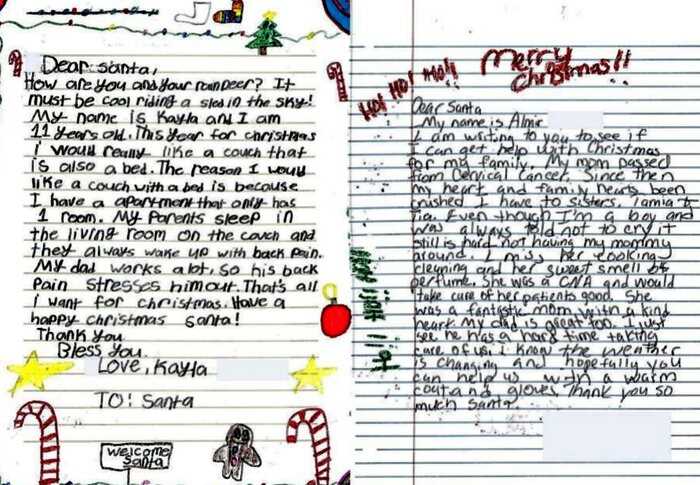 Dear santa,
How are you and your raindeer? It
must be cool riding a sled in the sky!
My name is Kayla and I am
11 years old. This year for christmas
i would really like a couch that
is also a bed. The reason I would
like a couch with a bed is because
I have a apartment that only has
1 room. My Parents sleep in
the living room on the couch and
they always wake up with back pain.
My dad works a lot, so his back
Pain stresses him out. That's all
i want for christmas. Have a
happy christmas santa!
Thank you
Bless you.
Love, Kayla
TO: Santa
welcome
santa
Merry
Christmas!!
HO! HO! HO!!
Dear Santa
My name is Almir
I am writing to you to see if
I can get help with Christmas
for my family. My mom passed
from Cervical Cancer. Since then
my heart and family hearts been
crushed I have to sisters, Tamia &
Tia. Even though I'm a boy and
was always told not to cry it
still is hard not having my mommy
around. I miss her cooking
cleaning and her sweet smell of
perfume. She was a CNA and would
take care of her patients good. She
was a fantastic mom with a kind
heart. My dad is great too. I just
see he has a hard time taking
care of us. i know the weather
is changing and hopefully you
can help us with a warm
coat and gloves. Thank you so
much Santa
Ho!! Ho!! Ho!!!